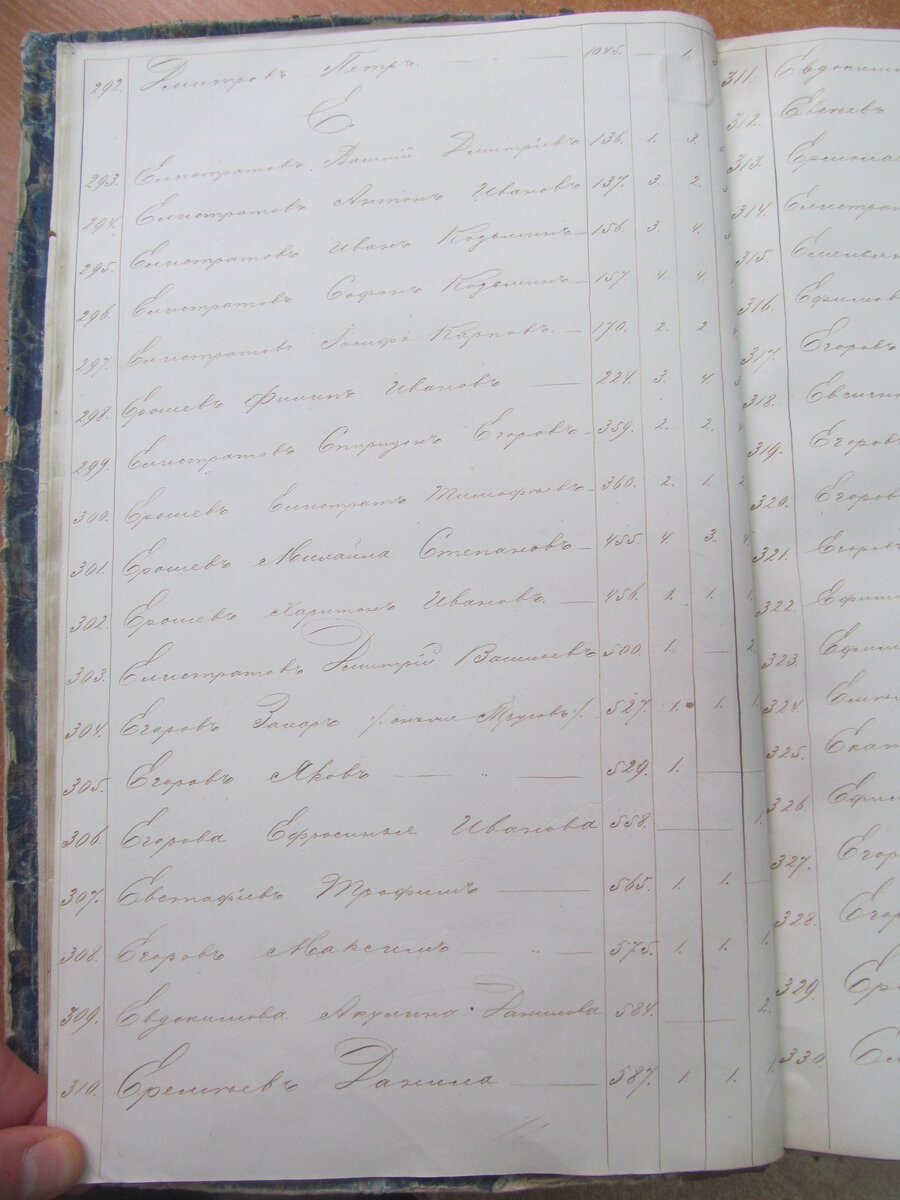 292. Дмитровъ Петръ. — — 1045. — 1.
Е
293. Елистратовъ Василій Дмитріевъ 136. 1. 3.
294. Елистратовъ Антонъ Ивановъ 137. 3. 2.
295. Елистратовъ Иванъ Козьминъ — 156. 3. 4. 3.
296. Елистратовъ Софонъ Козьминъ — 157. 4. 4.
297. Елистратовъ Іосифъ Карповъ — 170. 2. 2
298. Ерошевъ Филипъ Ивановъ — 224. 3. 4. 3.
299. Елистратовъ Спиридонъ Егоровъ — 359. 2. 2. 4.
300. Ерошевъ Елистратъ Тимофѣевъ — 360. 2. 1. 2.
301. Ерошевъ Михайла Степановъ — 455. 4. 3. 4.
302. Ерошевъ Харитонъ Ивановъ — 456. 1. 1. 1.
303. Елистратовъ Дмитрій Васильевъ 500. 1. — 2.
304. Егоровъ Захаръ /: онъ же Трусовъ :/. 527. 1. 1. 1.
305. Егоровъ Яковъ — „ — 529. 1. —
306. Егорова Ефросинья Иванова 558. — 1.
307. Евстафіевъ Трофимъ — 565. 1. 1. —
308. Егоровъ Максимъ — „ — 575. 1. 1. 1.
309. Евдокимова Акулина Данилова 584. — 2.
310. Еремѣевъ Данила — 587. 1. 1. 1.
311. Евдоким
312. Евсѣевъ
313. Ермола
314. Елистрат
315. Емельян
316. Ефимов
317. Егоровъ
318. Евсигн
319. Егоров
320. Егоров
321. Егоровъ
322. Ефим
323. Ефим
324.
325. Екат
326. Ефи
327. Егор
328. Егор
329.
330.